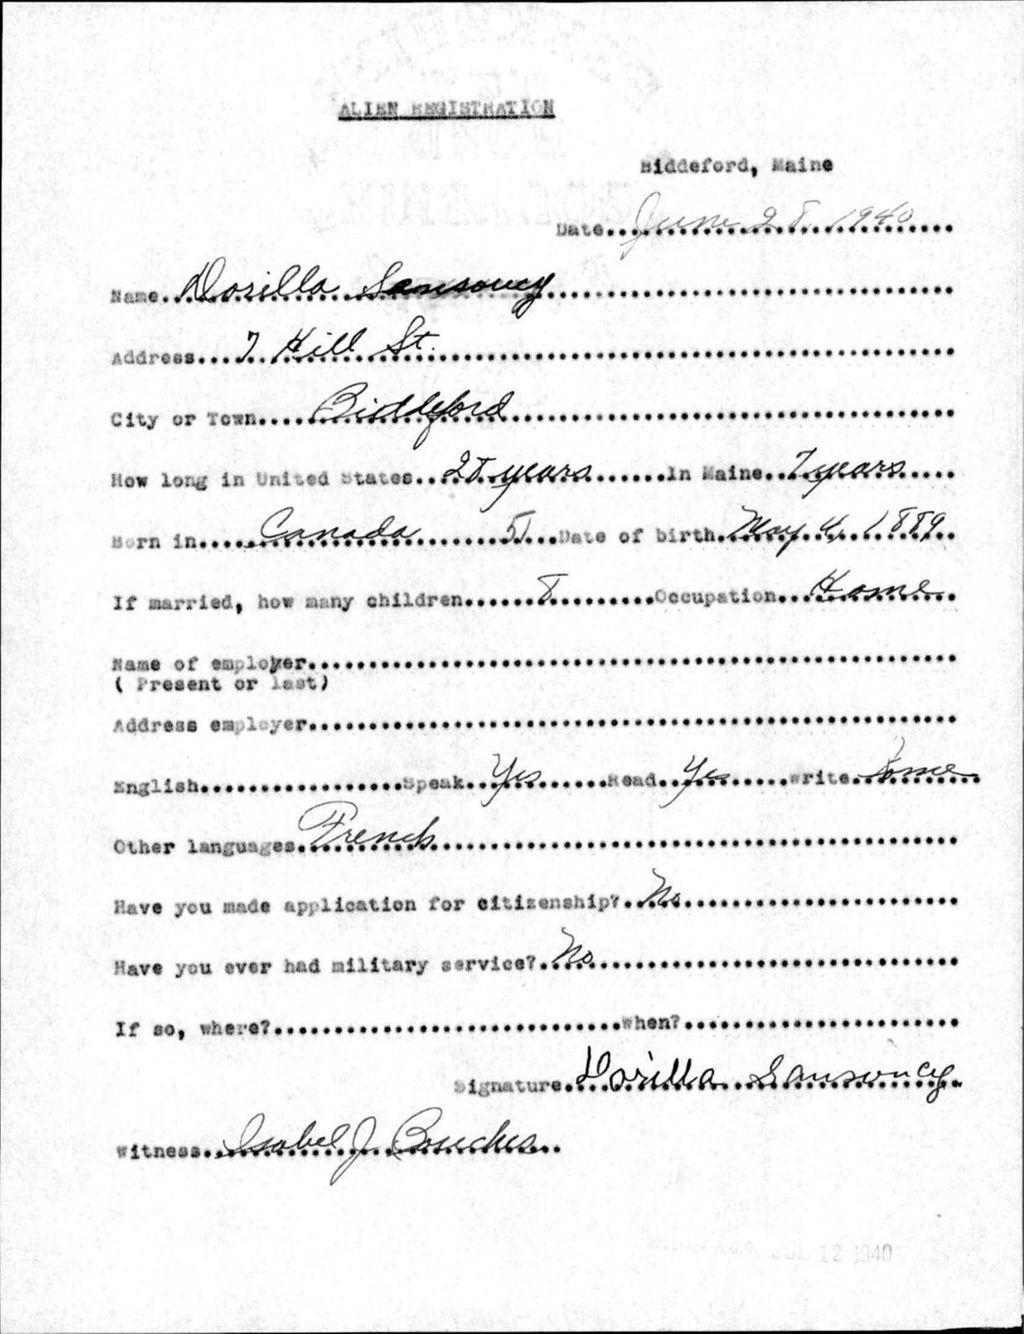 ALIEN REGISTRATION
Biddeford, Maine
Date June 28, 1940
Name Dorilla Sansoucy
Address 7 Hill St.
City or Town Biddeford
How long in United States 28 years In Maine 7 years
Born in Canada 51 Date of birth May 4, 1889
If married, how many children 8 Occupation Home
Name of employer
( Present or last)
Address employer
English Speak Yes Read Yes Write Some
Other languages French
Have you made application for citizenship? No
Have you ever had military service? No
If so, where? When?
Signature Dorilla Sansoucy
Witness Isabel J.
JUL 12 1940